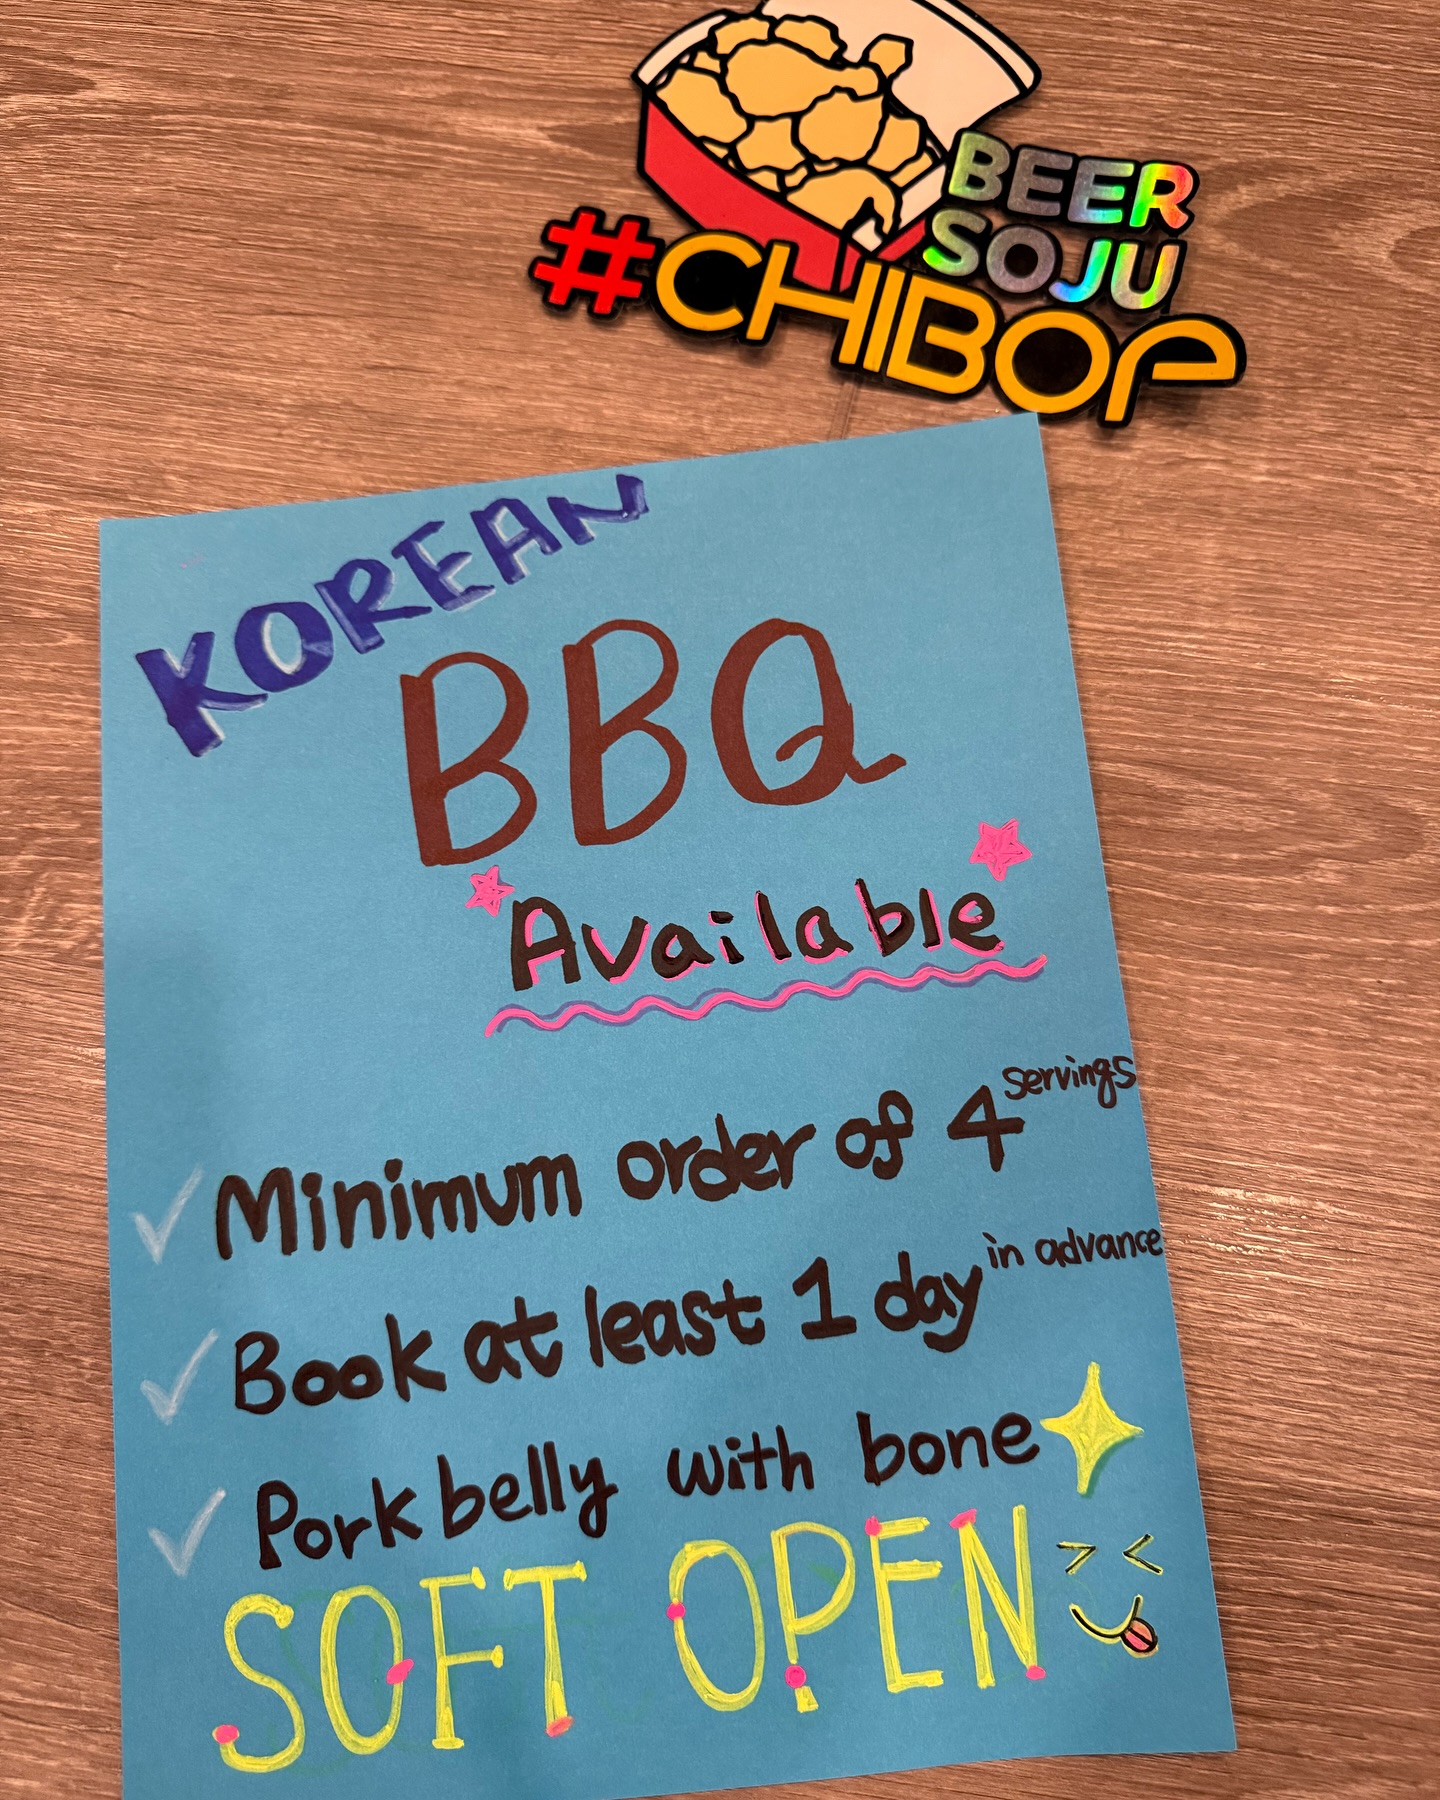 BEER
SOJU
#CHIBOP
KOREAN
BBQ
Available
Minimum order of 4 servings
Book at least 1 day in advance
Pork belly with bone
SOFT OPEN